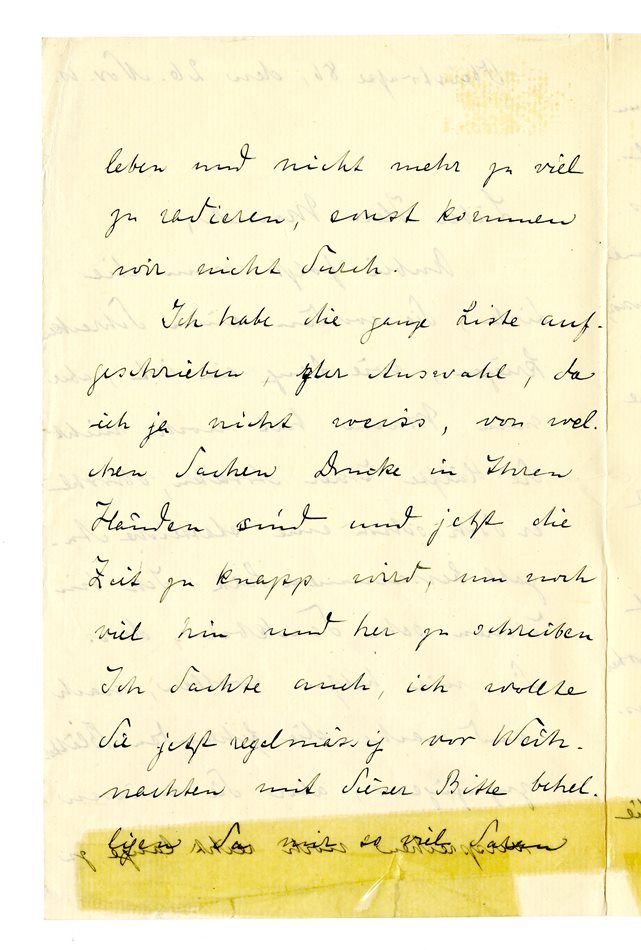 leben und nicht mehr zu viel
zu radieren, sonst kommen
wir nicht durch.
Ich habe die ganze Liste auf-
geschrieben, zur Auswahl, da
ich ja nicht weiss, von wel-
chen Sachen Drucke in Ihren
Händen sind und jetzt die
Zeit zu knapp wird, um noch
viel hin und her zu schreiben
Ich dachte auch, ich wollte
Sie jetzt regelmässig vor Weih-
nachten mit dieser Bitte behel-
ligen da mir so viel daran